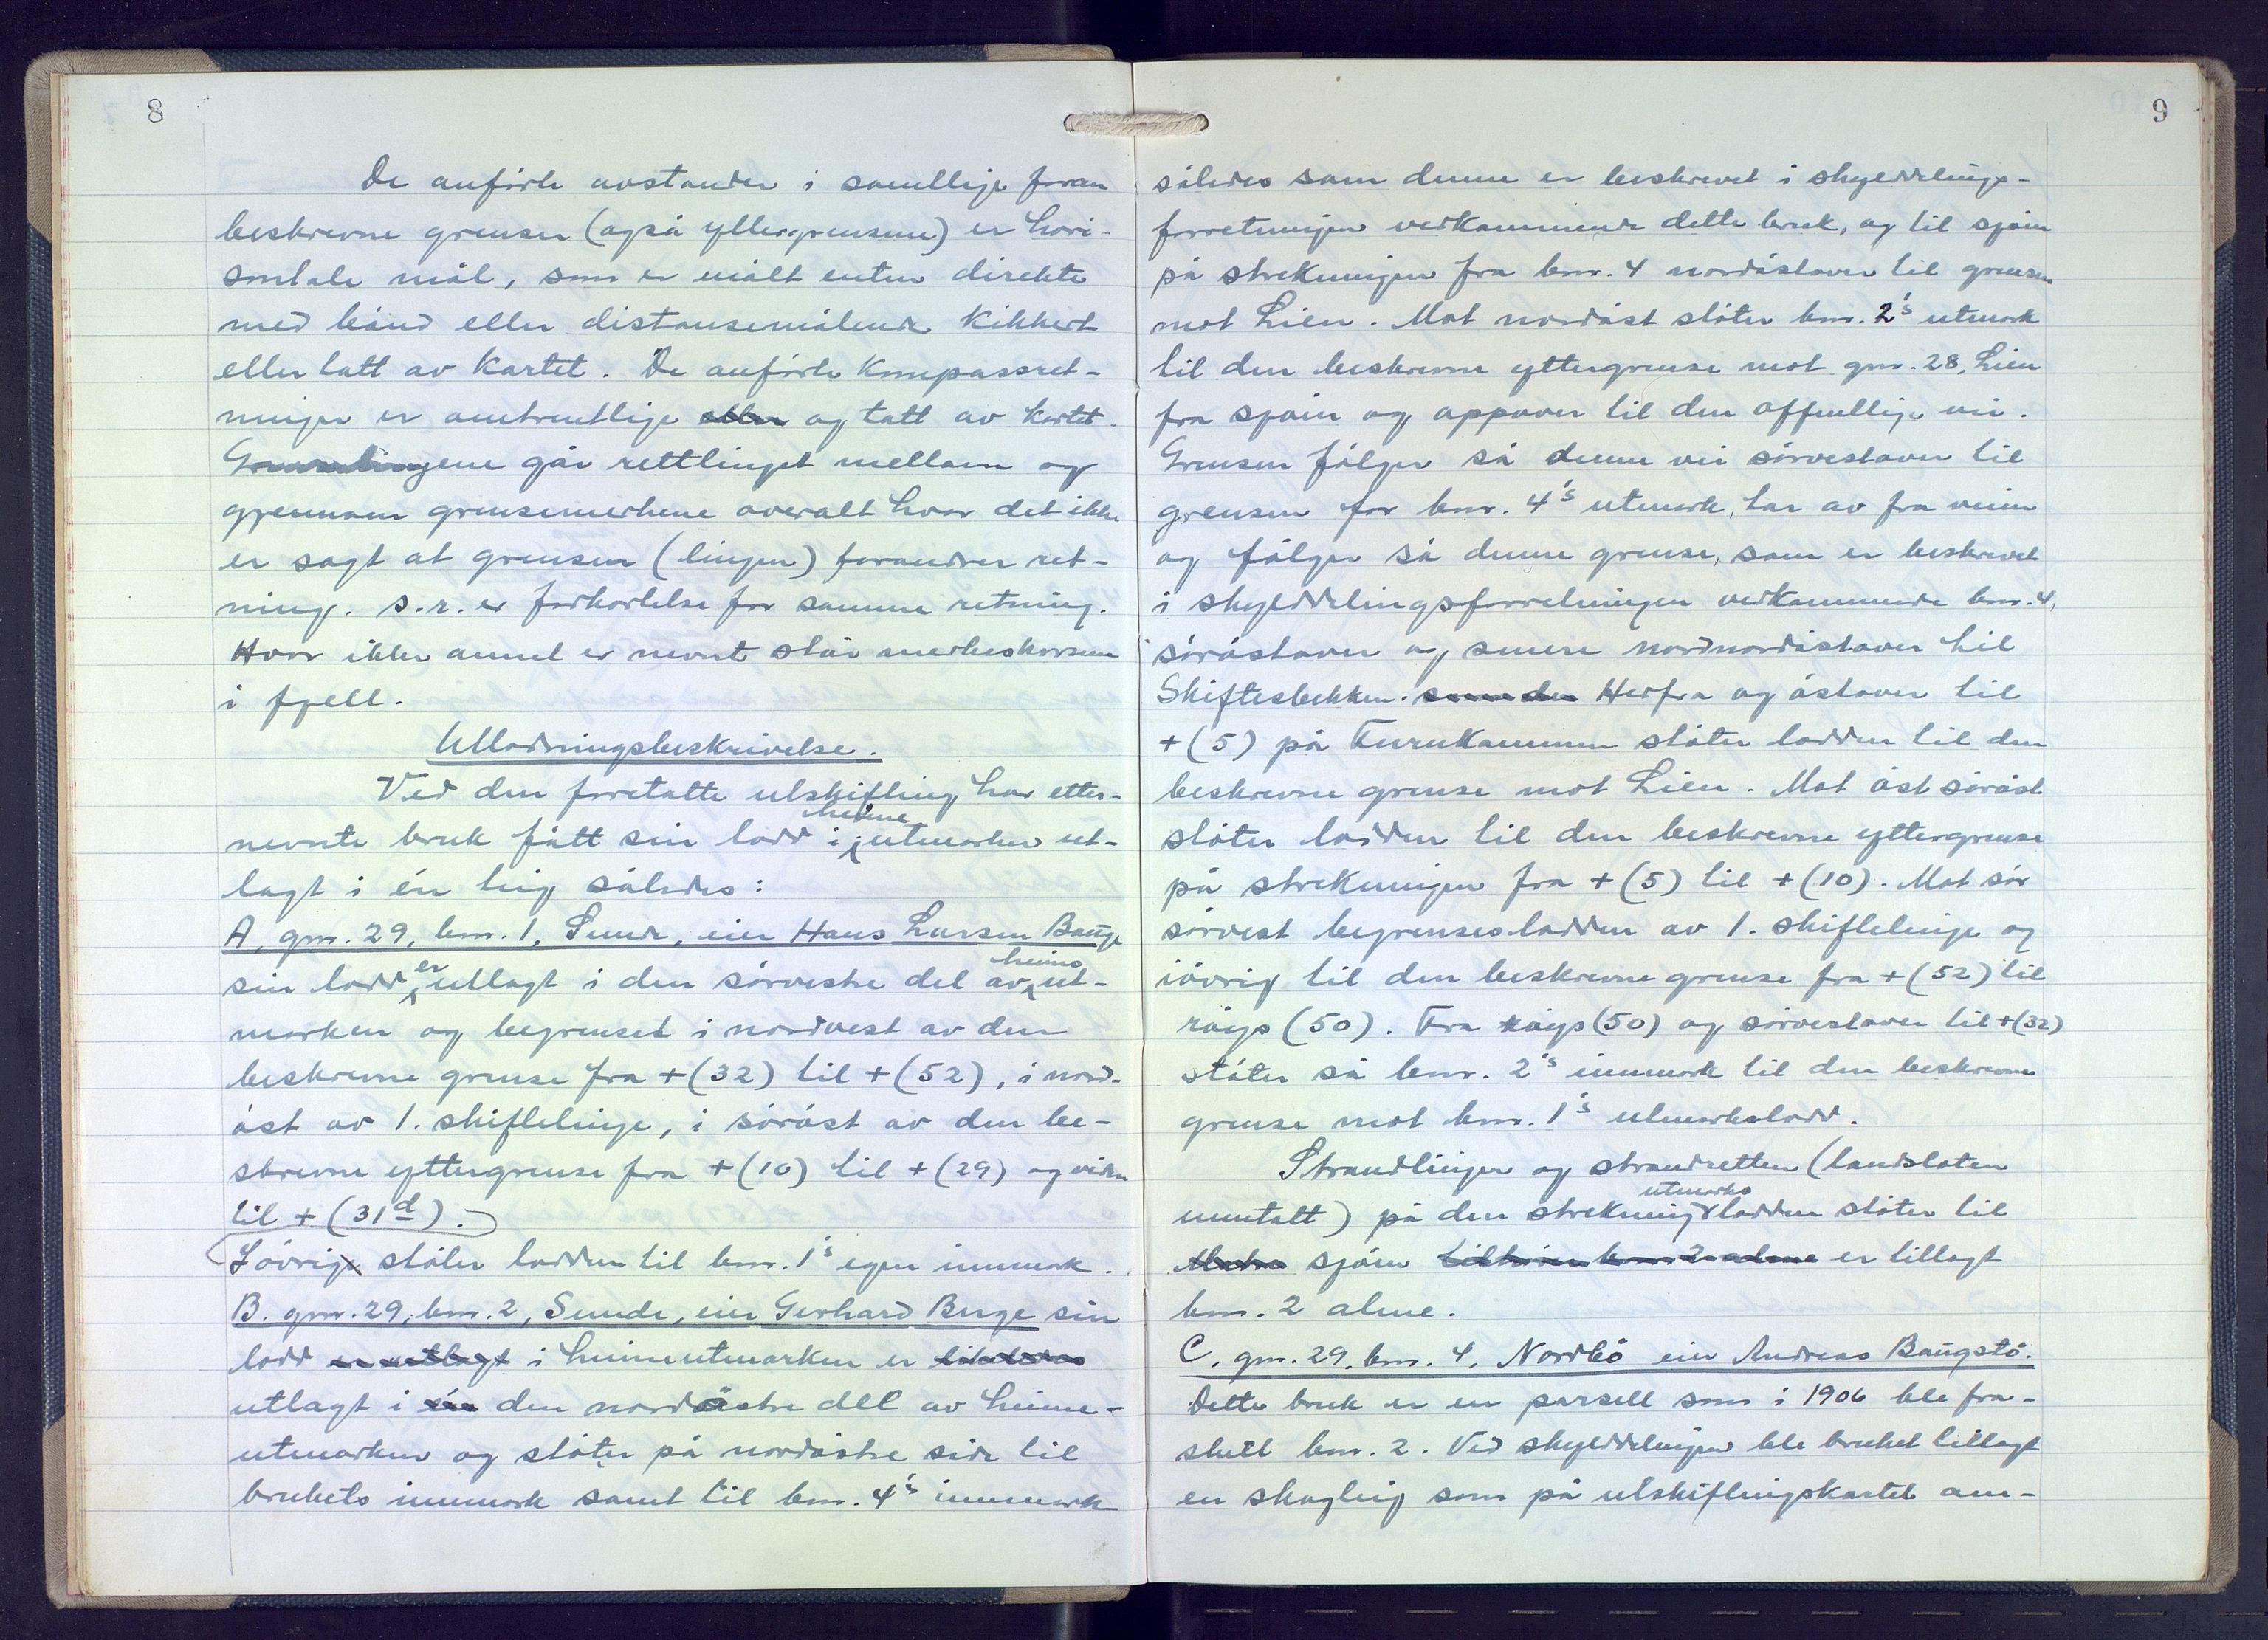 8
De anförte avstander i samtlige foran
beskrevne grenser (også yttergrensene) er hori-
sontale mål, som er målt enten direkte
med bånd eller distansemålende kikkert
eller tatt av kartet. De anförte kompassret-
ninger er omtrentlige eller og tatt av kartet.
Grenselingene går rettlinget mellom og
gjennom grensemerkene overalt hvor det ikke
er sagt at grensen (lingen) forandrer ret-
ning. s.r. er forkortelse for samme retning.
Hvor ikke annet er nevnt står merkeskorsene
i fjell.
Utlodningsbeskrivelse.
Ved den foretatte utskifting har etter-
nevnte bruk fått sin lodd i heime utmarken ut-
lagt i én teig således:
A, gnr. 29, bnr. 1, Sunde, eier Hans Larsen Bauge
sin lodd er utlagt i den sörvestre del av heime ut-
marken og begrenset i nordvest av den
beskrevne grense fra +(32) til +(52), i nord-
öst av 1. skiftelinje, i söröst av den be-
skrevne yttergrense fra +(10) til +(29) og videre
til +(31d).
Iövrig stöter lodden til bnr. 1's egen innmark.
B. gnr. 29, bnr. 2, Sunde, eier Gerhard Buge sin
lodd er utlagt i heimeutmarken er
utlagt i én den nordöstre del av heime-
utmarken og stöter på nordöstre side til
brukets innmark samt til bnr. 4's innmark
9
således som denne er beskrevet i skylddelings-
forretningen vedkommende dette bruk, og til sjöen
på strekningen fra bnr. 4 nordöstover til grensen
mot Lien. Mot nordöst stöter bnr. 2's utmark
til den beskrevne yttergrense mot gnr. 28, Lien
fra sjöen og oppover til den offentlige vei.
Grensen fölger så denne vei sörvestover til
grensen for bnr. 4's utmark, tar av fra veien
og fölger så denne grense, som er beskrevet
i skylddelingsforretningen vedkommende bnr. 4,
söröstover og senere nordnordöstover til
Skiftesbekken. som den Herfra og östover til
+(5) på Furukammen stöter lodden til den
beskrevne grense mot Lien. Mot öst söröst
stöter lodden til den beskrevne yttergrense
på strekningen fra +(5) til +(10). Mot sör
sörvest begrenses lodden av 1. skiftelinje og
iövrig til den beskrevne grense fra +(52) til
röys (50). Fra röys (50) og sörvestover til +(32)
stöter så bnr. 2's innmark til den beskrevne
grense mot bnr. 1's utmarkslodd.
Strandlinjen og strandretten (landslåten
unntatt) på den strekning utmarks lodden stöter til
sjöen tilhörer bnr. 2 alene er tillagt
bnr. 2 alene.
C, gnr. 29, bnr. 4, Nordbö eier Andreas Baugstö.
Dette bruk er en parsell som i 1906 ble fra-
skilt bnr. 2. Ved skylddelingen ble bruket tillagt
en skogteig som på utskiftingskartet om-